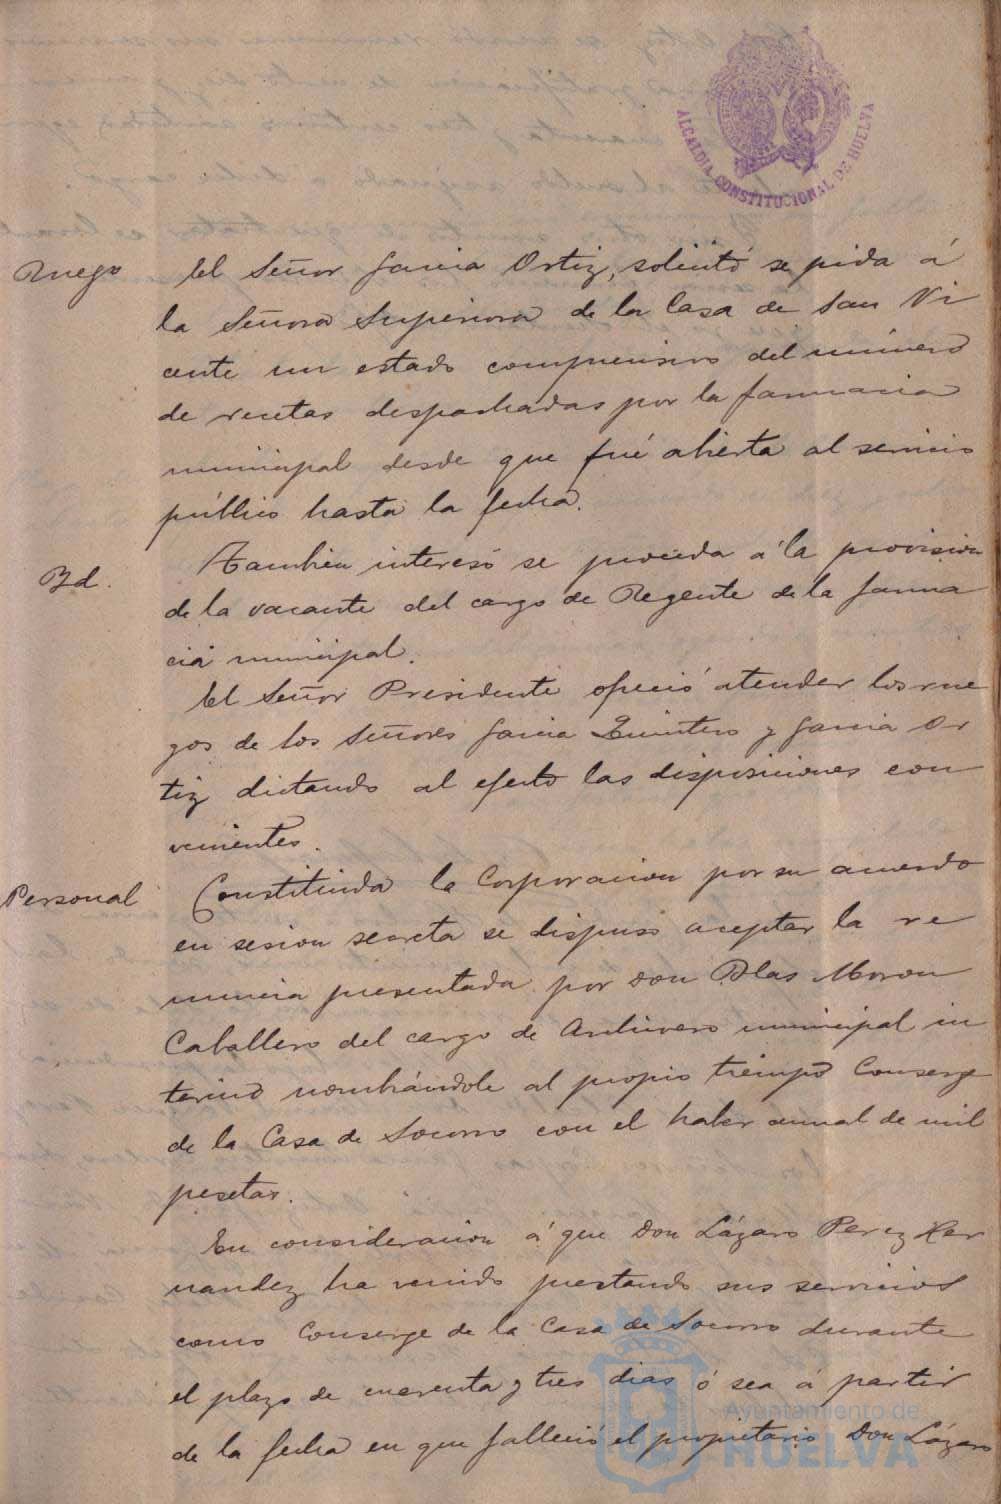 ALCALDIA CONSTITUCIONAL DE HUELVA
Ruego
El Señor Garcia Ortiz, solicitó se pida á
la Señora Superiora de la Casa de San Vi
cente un estado comprensivo del número
de recetas despachadas por la farmacia
municipal desde que fué abierta al servicio
público hasta la fecha.
Id.
Tambien interesó se proceda á la provision
de la vacante del cargo de Regente de la farma
cia municipal.
El Señor Presidente ofreció atender los rue
gos de los Señores Garcia Quintero y Garcia Or
tiz dictando al efecto las disposiciones con
venientes.
Personal
Constituida la Corporacion por su acuerdo
en sesion secreta se dispuso aceptar la re
nuncia presentada por Don Blas Moron
Caballero del cargo de Archivero municipal in
terino nombrándole al propio tiempo Conserge
de la Casa de Socorro con el haber anual de mil
pesetas.
En consideracion á que Don Lázaro Perez Her
nandez ha venido prestando sus servicios
como Conserge de la Casa de Socorro durante
el plazo de cuarenta y tres dias ó sea á partir
de la fecha en que falleció el propietario Don Lázaro
Ayuntamiento de
HUELVA